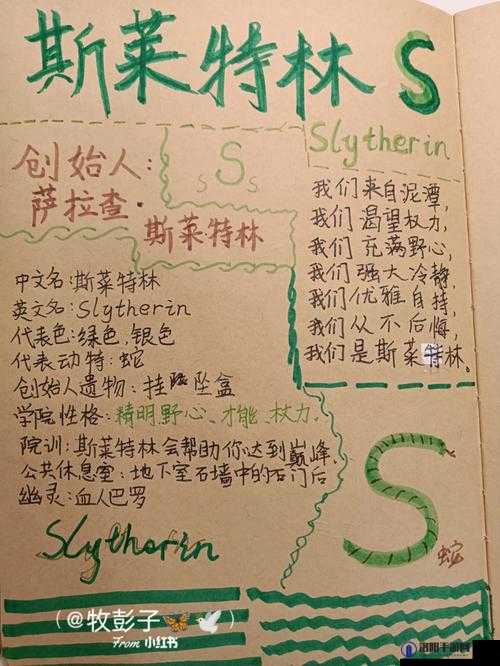 斯莱特林 S
Slytherin
创始人:
萨拉查·
斯莱特林
S
S S
我们来自泥潭,
我们渴望权力,
我们充满野心,
我们强大冷静,
我们优雅自持,
我们从不后悔,
我们是斯莱特林。
中文名:斯莱特林
英文名:Slytherin
代表色:绿色,银色
代表动特:蛇
创始人遗物:挂坠盒
学院性格:精明、野心、才能、权力.
院训:斯莱特林会帮助你达到巅峰.
公共休息室:地下室石墙中的石门后
幽灵:血人巴罗
Slytherin
S
蛇
(@牧彭子🦋🕊️)
From 小红书